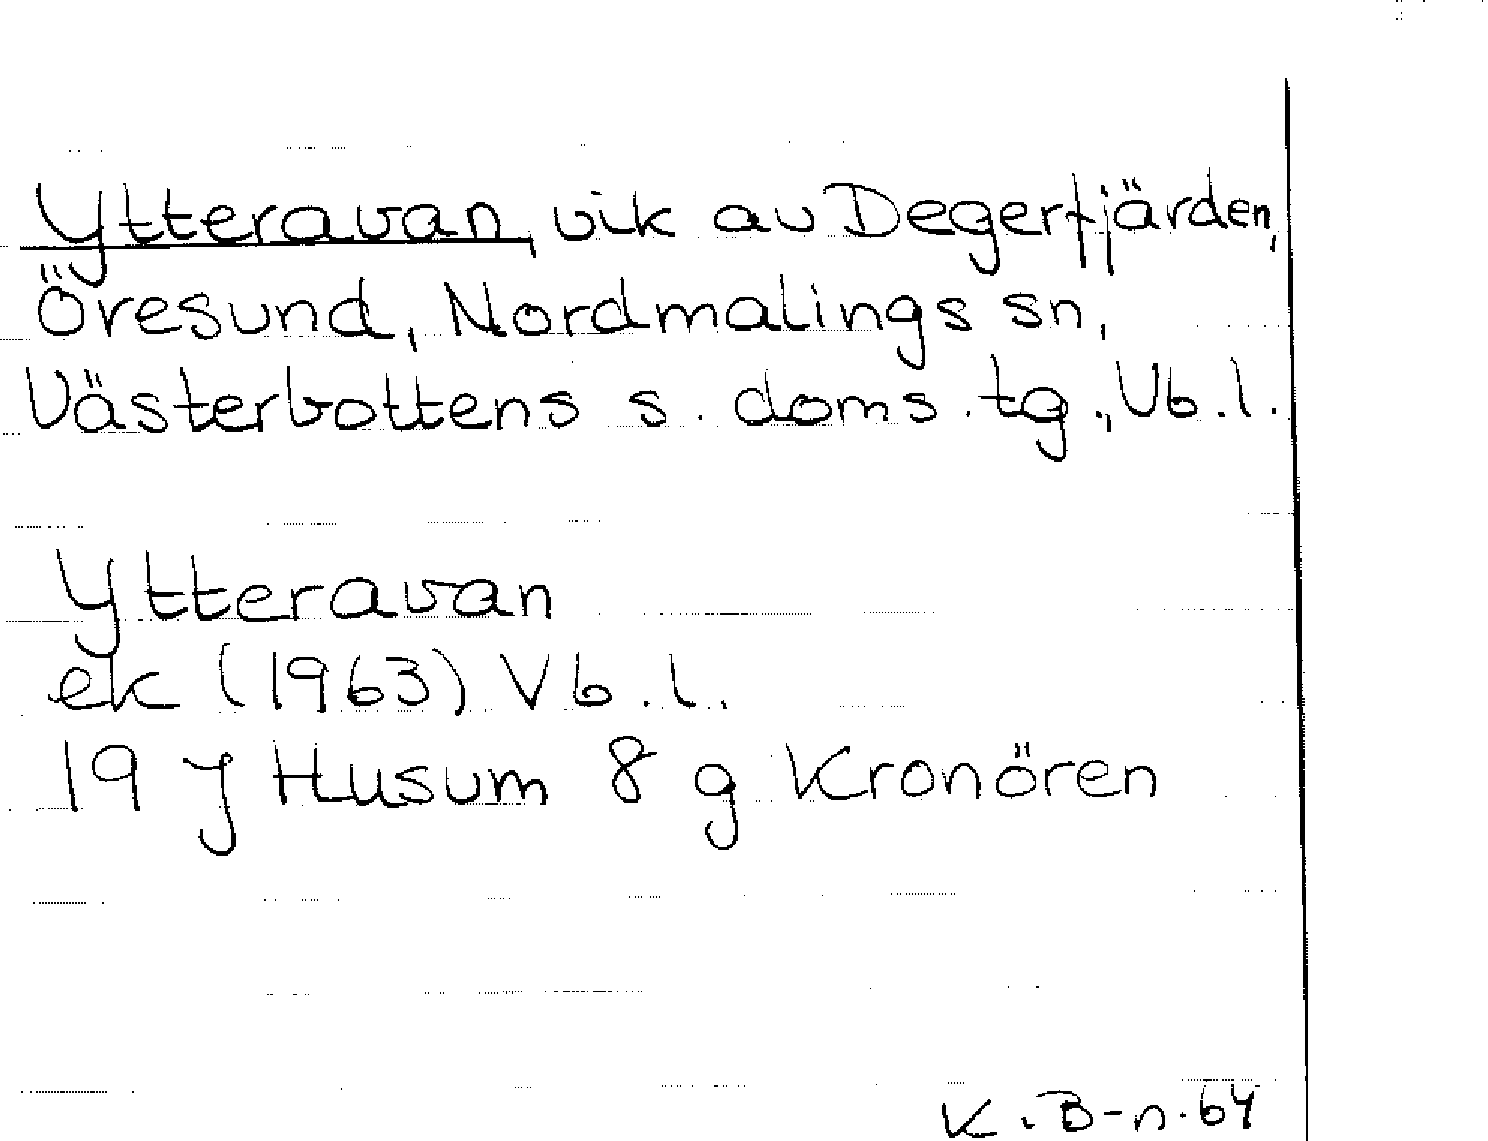 Ytteravan, vik av Degerfjärden,
Öresund, Nordmalings sn,
Västerbottens s. doms. tg., Vb. l.
Ytteravan
ek (1963) Vb. l.
19 J Husum 8 g Kronören
K. B-n. 64